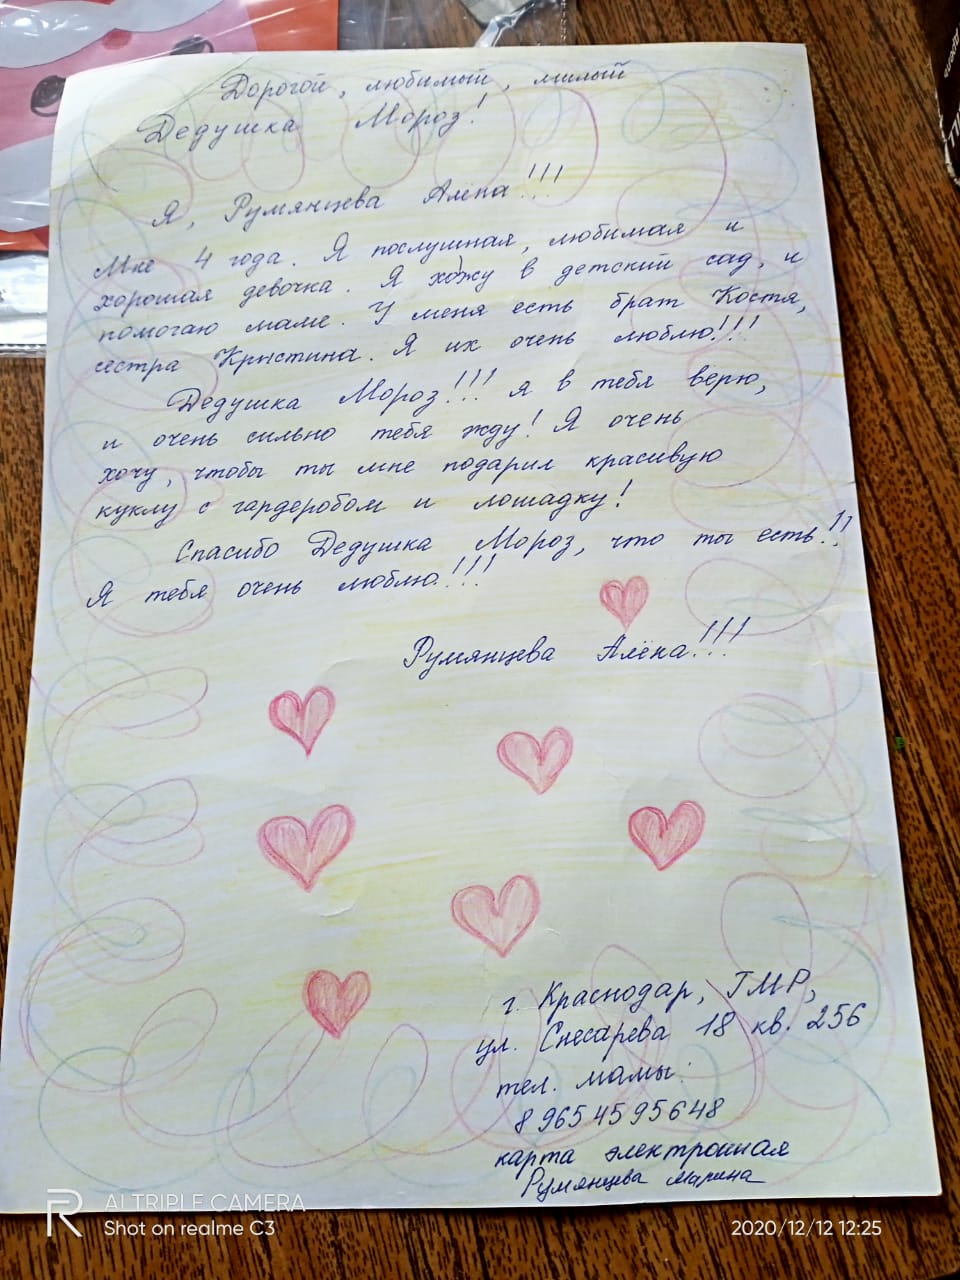 Дорогой, любимый, милый
Дедушка Мороз!
Я, Румянцева Алёна!!!
Мне 4 года. Я послушная, любимая и
хорошая девочка. Я хожу в детский сад, и
помогаю маме. У меня есть брат Костя,
сестра Кристина. Я их очень люблю!!!
Дедушка Мороз!!! я в тебя верю,
и очень сильно тебя жду! Я очень
хочу, чтобы ты мне подарил красивую
куклу с гардеробом и лошадку!
Спасибо Дедушка Мороз, что ты есть!!
Я тебя очень люблю!!!
Румянцева Алёна!!!
г. Краснодар, ГМР,
ул. Снесарева 18 кв. 256
тел. мамы:
8 965 45 95 648
карта электронная
Румянцева Марина
AI TRIPLE CAMERA
Shot on realme C3
2020/12/12 12:25